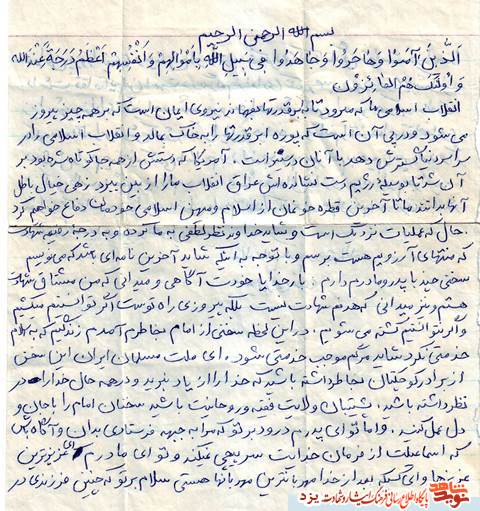 بسم الله الرحمن الرحیم
الَّذینَ آمَنُوا وَهَاجَروُا وَجاهَدُوا فی سَبیلِ اللّهِ بِاَموالِهِمْ وَاَنْفُسِهِمْ اَعْظَمُ دَرَجَةً عِنْدَاللهِ
وَ اُولئِکَ هُمُ الفائِزوُن
انقلاب اسلامی ما که میرود تا به ابرقدرتها بفهماند نیروی ایمان است که بر همه چیز پیروز
می شود و در پی آن است که پوزه ابرقدرتها را به خاک بمالد و انقلاب اسلامی را در
سراسر دنیا گسترش دهد با آنان در ستیز است. آمریکا که دستش از همه جا کوتاه شده بود بر
آن شد تا بوسیله رژیم دست نشانده اش عراق انقلاب ما را از بین ببرد زهی خیال باطل
آنها بدانند ما تا آخرین قطره خونمان از اسلام و میهن اسلامی خودمان دفاع خواهیم کرد
حال که عملیات نزدیک است و شاید خدا نظر لطفی به ما کرده و به درجه رفیع شهادت
که منتهای آرزویم هست برسم و با توجه به اینکه شاید آخرین نامه ای باشد که می نویسم
سخنی چند با پدر و مادرم دارم: بار خدایا خودت آگاهی و میدانی که من مشتاق شهادت
هستم و نیز میدانی که هدفم شهادت نیست بلکه پیروزی راه توست اگر توانستیم میکشیم
و اگر نتوانستیم کشته می شویم. در این لحظه سخنی از امام بخاطرم آمد زندگیم که به اسلام
خدمتی نکرد شاید مرگم موجب خدمتی شود. ای ملت مسلمان ایران این سخن
از برادر کوچکتان بخاطر داشته باشید که خدا را از یاد نبرید و در همه حال خدا را در
نظر داشته باشید. پشتیبان ولایت فقیه و روحانیت باشید سخنان امام را با جان و
دل عمل کنید. و اما تو ای پدرم درود بر تو که مرا به جبهه فرستادی بدان و آگاه باش
که اسماعیلت از فرمان خدایت سرپیچی نمیکند و تو ای مادرم ای عزیزترین
عزیزها و ای کسیکه بعد از خدا مهربانترین مهربانها هستی سلام بر تو که چنین فرزندی در
نوید شاهد
پایگاه اطلاع رسانی فرهنگ ایثار و شهادت یزد